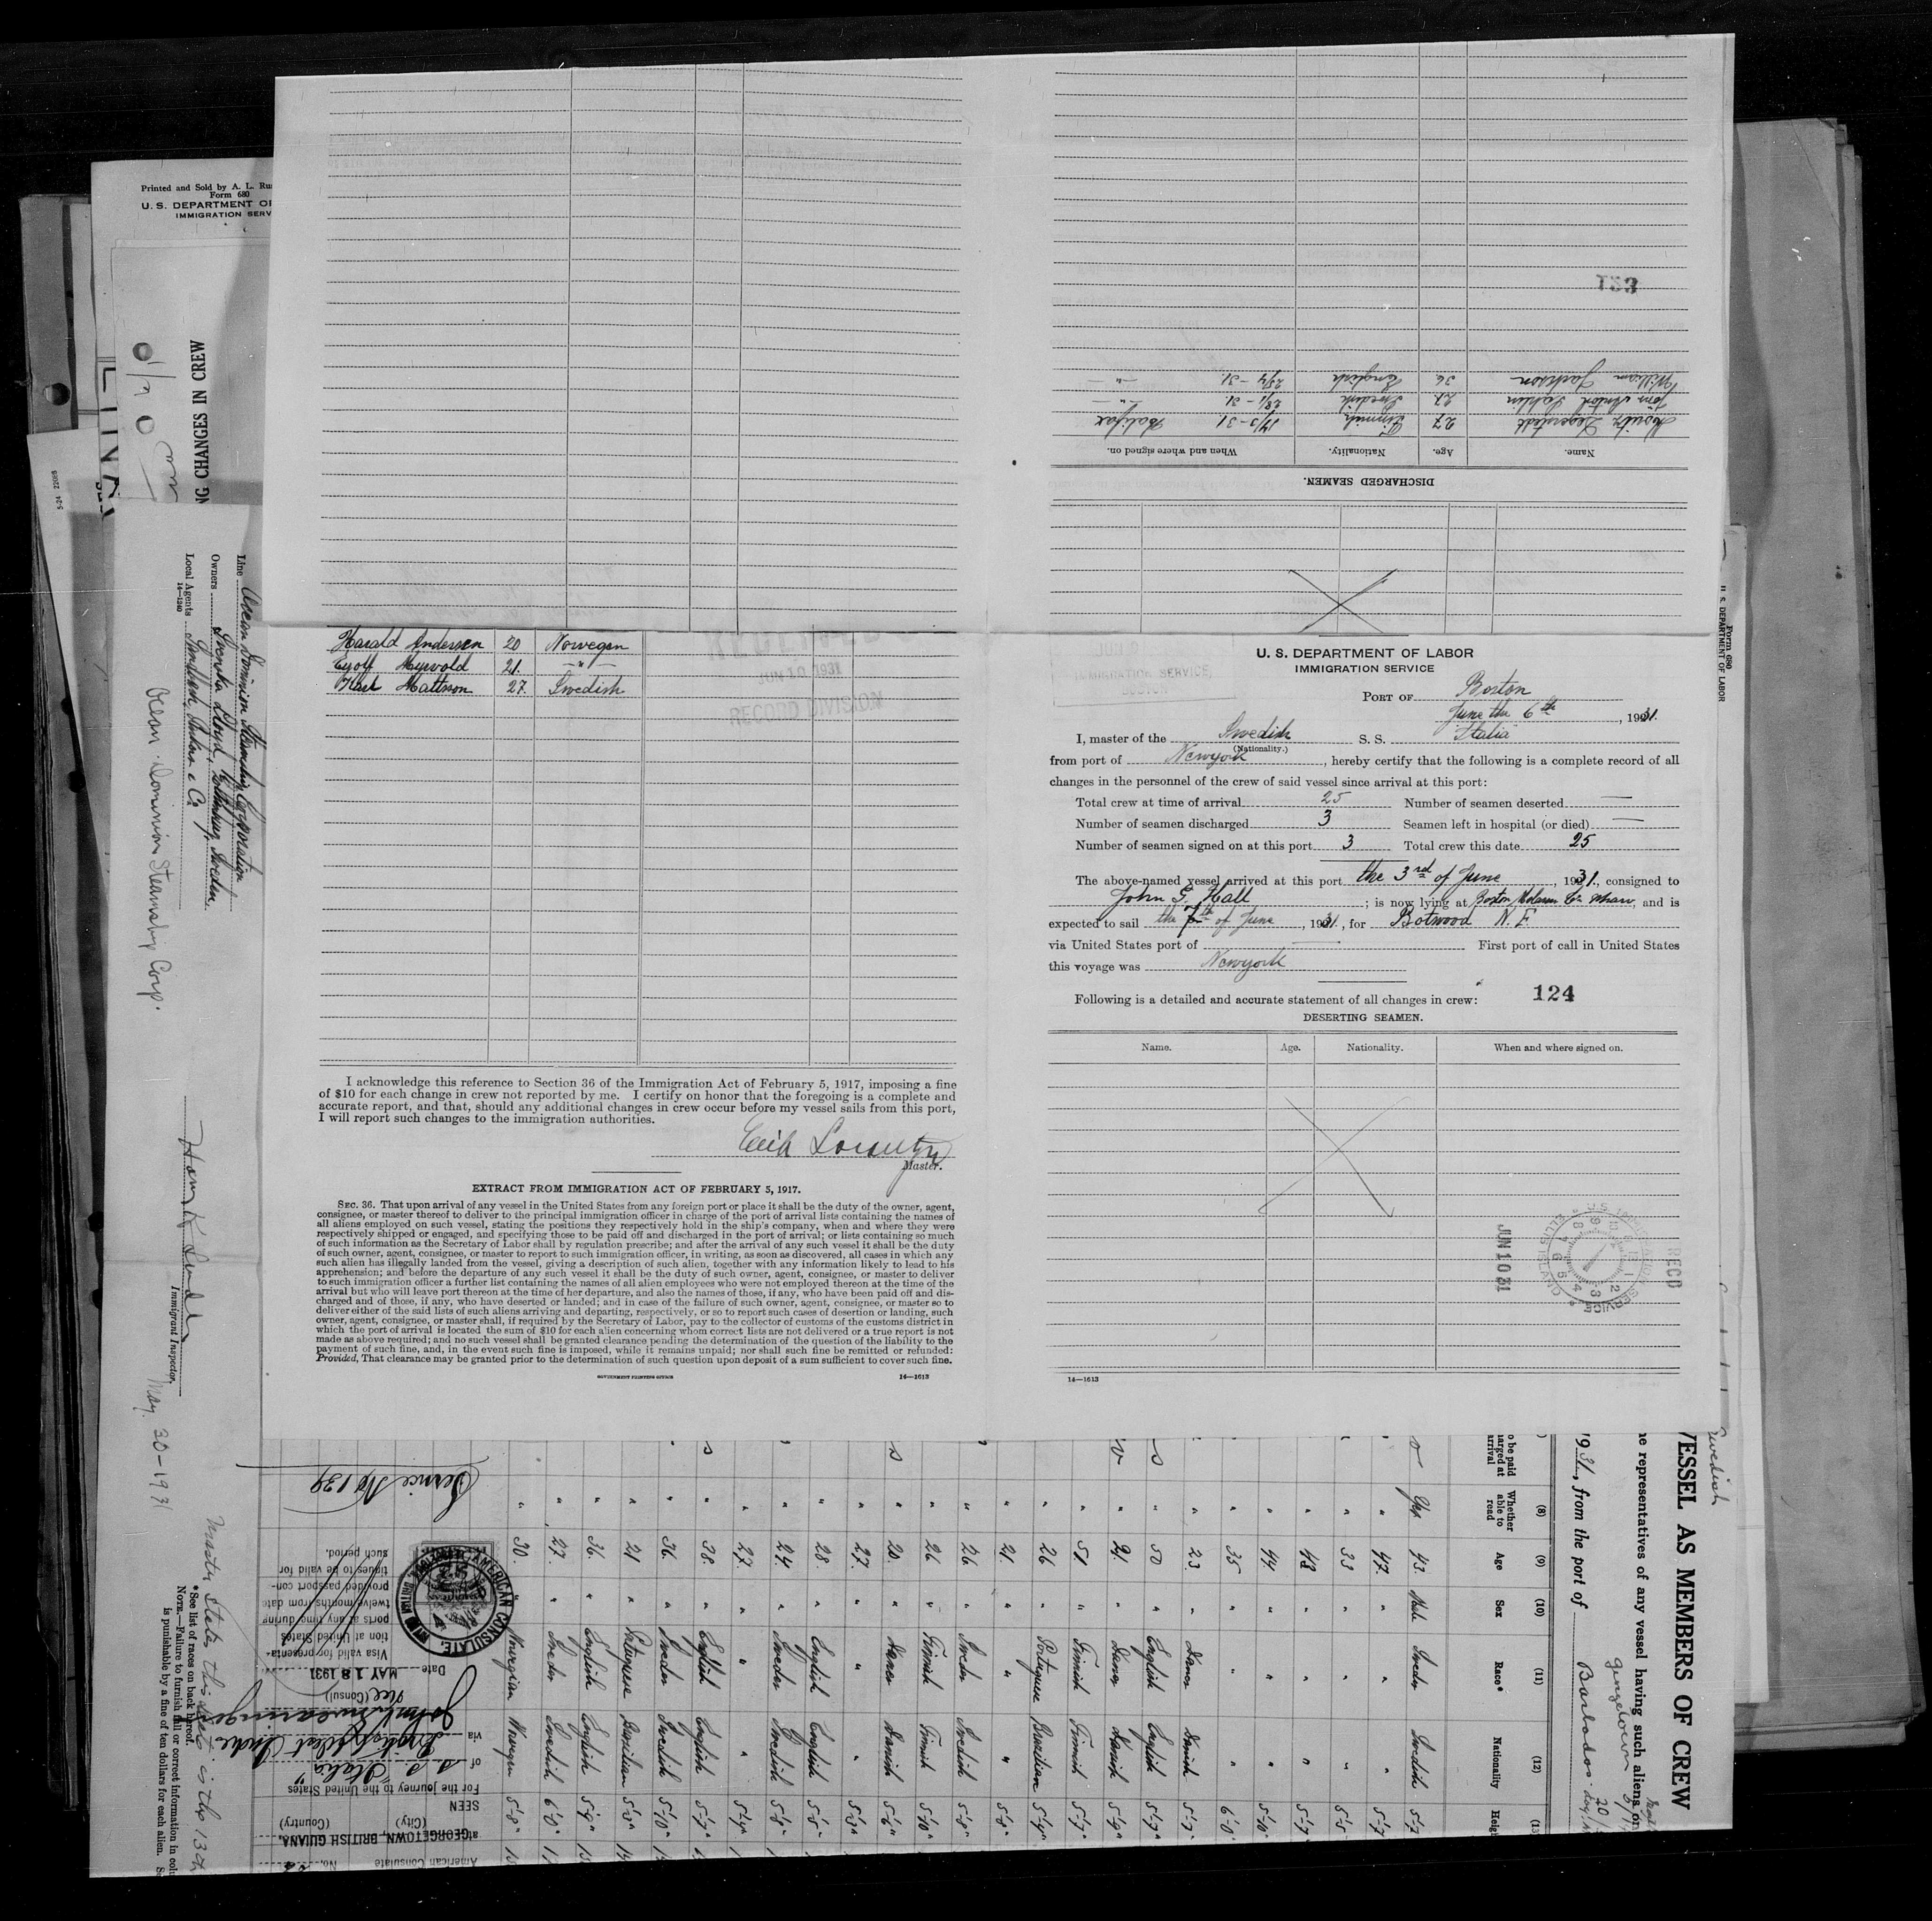 Printed and Sold by A. L.
Form 680
U. S. DEPARTMENT OF
IMMIGRATION SERV
NG CHANGES IN CREW
Line Ocean Dominion Steamship Corporation
Owners Svenska Lloyd, Gothenburg, Sweden.
Local Agents
14-1240
Ocean Dominion Steamship Corp.
Immigrant Inspector.
May. 30-1931
133
William Jackson 36 English 28/4-31. -"-
27 Finnish 17/3-31 Halifax
Name. Age. Nationality. When and where signed on.
DISCHARGED SEAMEN.
Harald Andersen 20 Norwegen
Eyolf Myrvold 21. -"-
Karl Mattson 27. Swedish
RECEIVED
JUN 10 1931
RECORD DIVISION
I acknowledge this reference to Section 36 of the Immigration Act of February 5, 1917, imposing a fine
of $10 for each change in crew not reported by me. I certify on honor that the foregoing is a complete and
accurate report, and that, should any additional changes in crew occur before my vessel sails from this port,
I will report such changes to the immigration authorities.
Master.
EXTRACT FROM IMMIGRATION ACT OF FEBRUARY 5, 1917.
SEC. 36. That upon arrival of any vessel in the United States from any foreign port or place it shall be the duty of the owner, agent,
consignee, or master thereof to deliver to the principal immigration officer in charge of the port of arrival lists containing the names of
all aliens employed on such vessel, stating the positions they respectively hold in the ship's company, when and where they were
respectively shipped or engaged, and specifying those to be paid off and discharged in the port of arrival; or lists containing so much
of such information as the Secretary of Labor shall by regulation prescribe; and after the arrival of any such vessel it shall be the duty
of such owner, agent, consignee, or master to report to such immigration officer, in writing, as soon as discovered, all cases in which any
such alien has illegally landed from the vessel, giving a description of such alien, together with any information likely to lead to his
apprehension; and before the departure of any such vessel it shall be the duty of such owner, agent, consignee, or master to deliver
to such immigration officer a further list containing the names of all alien employees who were not employed thereon at the time of the
arrival but who will leave port thereon at the time of her departure, and also the names of those, if any, who have been paid off and dis-
charged and of those, if any, who have deserted or landed; and in case of the failure of such owner, agent, consignee, or master so to
deliver either of the said lists of such aliens arriving and departing, respectively, or so to report such cases of desertion or landing, such
owner, agent, consignee, or master shall, if required by the Secretary of Labor, pay to the collector of customs of the customs district in
which the port of arrival is located the sum of $10 for each alien concerning whom correct lists are not delivered or a true report is not
made as above required; and no such vessel shall be granted clearance pending the determination of the question of the liability to the
payment of such fine, and, in the event such fine is imposed, while it remains unpaid; nor shall such fine be remitted or refunded:
Provided, That clearance may be granted prior to the determination of such question upon deposit of a sum sufficient to cover such fine.
GOVERNMENT PRINTING OFFICE 14-1613
IMMIGRATION SERVICE,
BOSTON
U. S. DEPARTMENT OF LABOR
IMMIGRATION SERVICE
PORT OF Boston
June the 6th, 1931.
I, master of the Swedish S. S. Italia
(Nationality.)
from port of Newyork, hereby certify that the following is a complete record of all
changes in the personnel of the crew of said vessel since arrival at this port:
Total crew at time of arrival 25 Number of seamen deserted —
Number of seamen discharged 3 Seamen left in hospital (or died) —
Number of seamen signed on at this port 3 Total crew this date 25
The above-named vessel arrived at this port the 3rd of June, 1931., consigned to
John G. Hall; is now lying at Boston Molasses Co wharv, and is
expected to sail the 7th of June, 1931., for Botwood N. F.
via United States port of — First port of call in United States
this voyage was Newyork
Following is a detailed and accurate statement of all changes in crew: 124
DESERTING SEAMEN.
Name. Age. Nationality. When and where signed on.
JUN 10 31
RECD
14-1613
Form 680
U. S. DEPARTMENT OF LABOR
Swedish
VESSEL AS MEMBERS OF CREW
ne representatives of any vessel having such aliens on
1931, from the port of Barbados
Georgetown
(8) Whether able to read
(9) Age
(10) Sex
(11) Race*
(12) Nationality
Yes 43 Male Swede Swedish 5-7
" 47. " " " 5-7
" 33 " " " 5-5
" 43 " " " 5-7
" 44 " " " 5-10"
" 35 " " " 6-0"
" 23. " Dane Danish 5-7
" 50 " English English 5-7"
" 21. " Dane Danish 5-9"
" 51 " Finnish Finnish 5-7"
" 26 " Portuguese Brasilian 5-4"
" 21. " " " 5-8"
" 26 " Swede Swedish 5-8"
" 26 " Finnish Finnish 5-10"
" 20. " Dane Danish 5-6"
" 27. " " " 5-3"
" 28. " English English 5-5"
" 24 " Swede Swedish 5-8"
" 27. " " " 5-4"
" 38. " English English 5-7"
" 36. " Swede Swedish 5-10"
" 21 " Portuguese Brasilian 5-5"
" 36. " English English 5-9"
" 27. " Swede Swedish 6-0"
" 30. " Norwegian Norwegen 5-8"
American Consulate No.
at GEORGETOWN, BRITISH GUIANA.
(City) (Country)
SEEN
For the journey to the United States
of S.S. "Italia"
via
Vice (Consul)
Date MAY 18 1931
Visa valid for presenta-
tion at United States
ports at any time during
twelve months from date
provided passport con-
tinues to be valid for
such period.
Service No 139
AMERICAN CONSULATE.
*See list of races on back hereof.
NOTE.—Failure to furnish full or correct information in colu
is punishable by a fine of ten dollars for each alien.
Master states this is the 13th